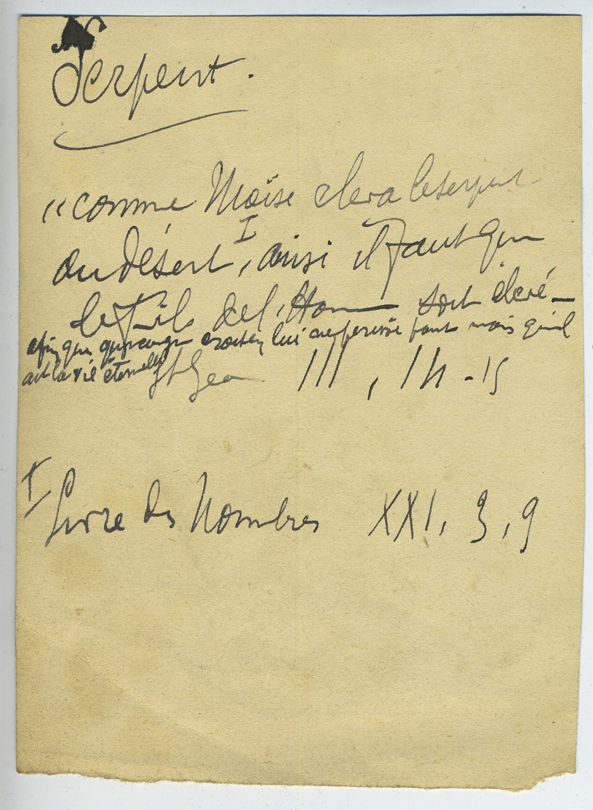 Serpent.
"comme Moïse éleva le serpent
au désert I, ainsi il faut que
le Fils de l'Homme soit élevé –
afin que quiconque croit en lui ne périsse point mais qu'il
ait la vie éternelle
St Jean III, 14-15
I Livre des Nombres XXI, 9, 9